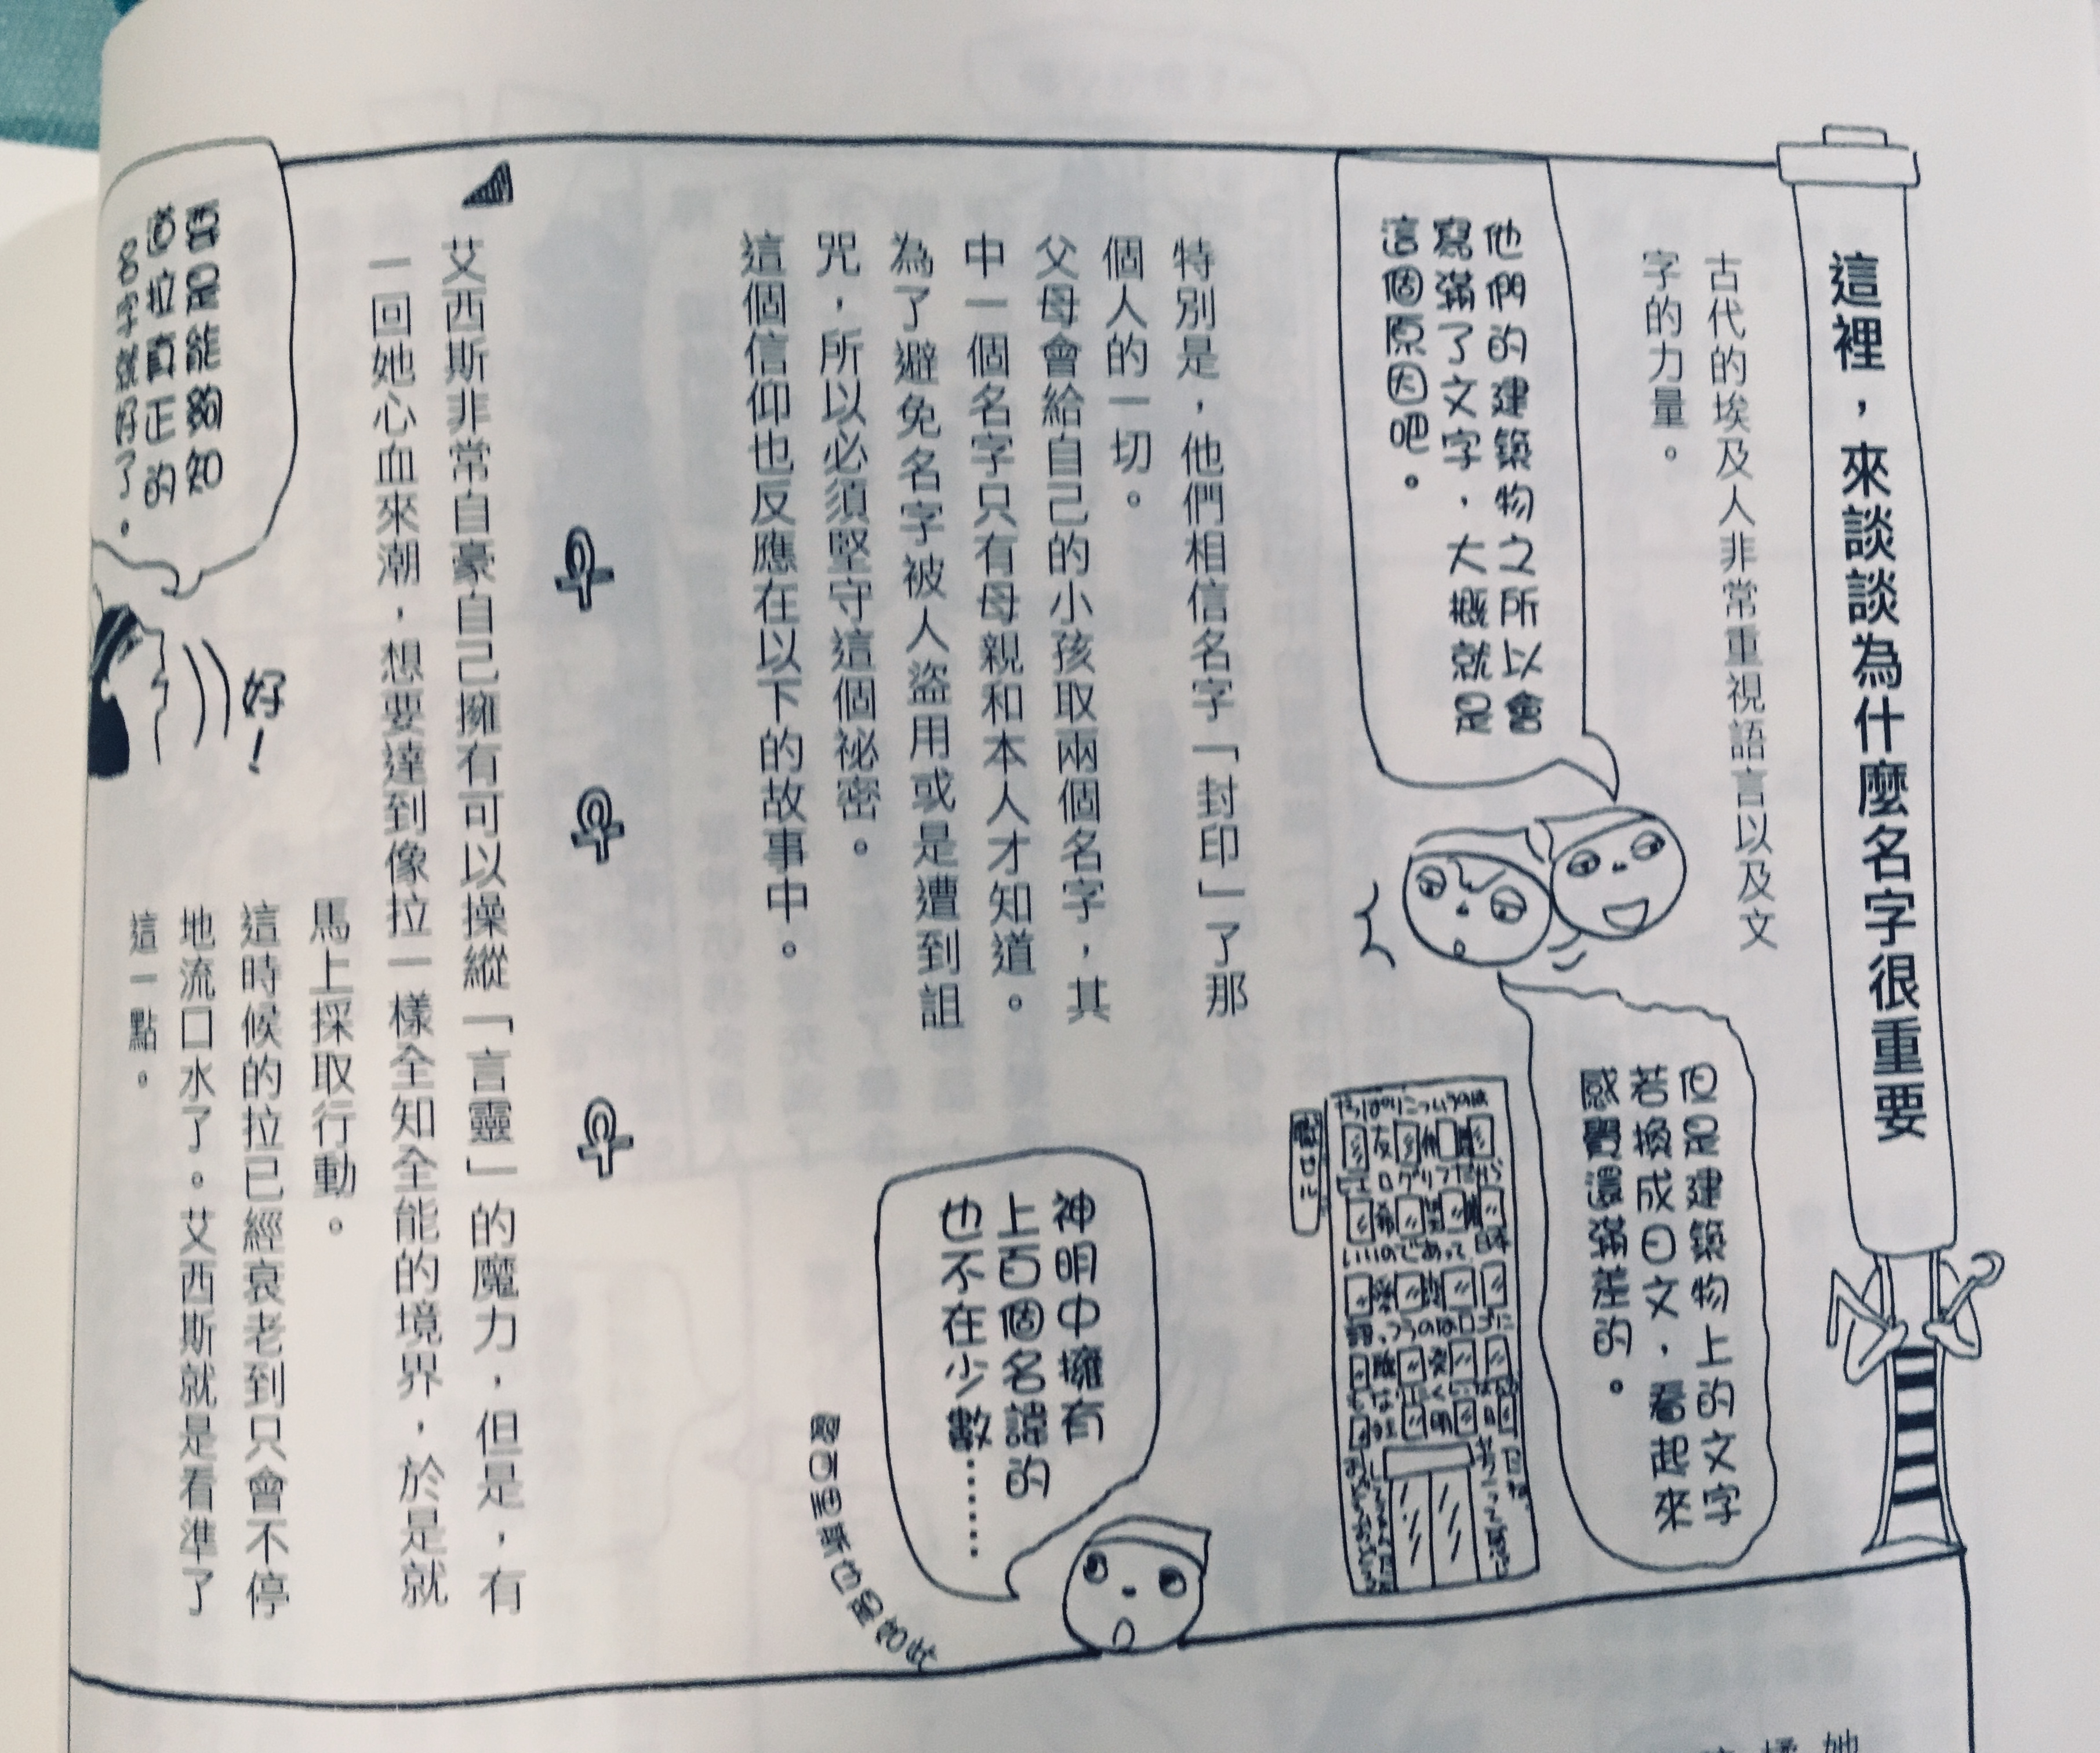 這裡，來談談為什麼名字很重要
古代的埃及人非常重視語言以及文
字的力量。
他們的建築物之所以會
寫滿了文字，大概就是
這個原因吧。
但是建築物上的文字
若換成日文，看起來
感覺還滿差的。
特別是，他們相信名字「封印」了那
個人的一切。
父母會給自己的小孩取兩個名字，其
中一個名字只有母親和本人才知道。
為了避免名字被人盜用或是遭到詛
咒，所以必須堅守這個祕密。
這個信仰也反應在以下的故事中。
神明中擁有
上百個名諱的
也不在少數……
艾西斯非常自豪自己擁有可以操縱「言靈」的魔力，但是，有
一回她心血來潮，想要達到像拉一樣全知全能的境界，於是就
馬上採取行動。
這時候的拉已經衰老到只會不停
地流口水了。艾西斯就是看準了
這一點。
好！
要是能夠知
道拉真正的
名字就好了。